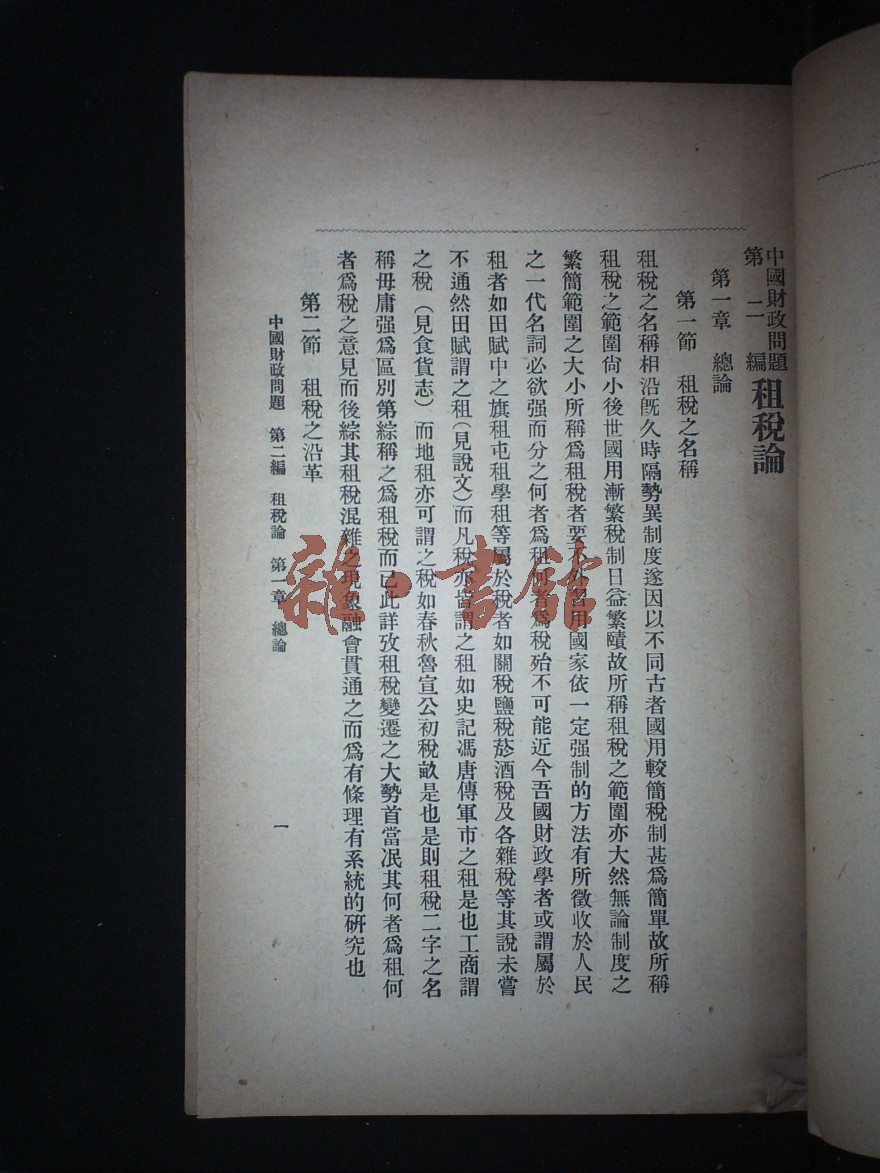 中國財政問題
第二編 租稅論
第一章 總論
第一節 租稅之名稱
租稅之名稱相沿旣久時隔勢異制度遂因以不同古者國用較簡稅制甚爲簡單故所稱
租稅之範圍尙小後世國用漸繁稅制日益繁賾故所稱租稅之範圍亦大然無論制度之
繁簡範圍之大小所稱爲租稅者要不外者用國家依一定强制的方法有所徵收於人民
之一代名詞必欲强而分之何者爲租何者爲稅殆不可能近今吾國財政學者或謂屬於
租者如田賦中之旗租屯租學租等屬於稅者如關稅鹽稅菸酒稅及各雜稅等其說未嘗
不通然田賦謂之租(見說文)而凡稅亦皆謂之租如史記馮唐傳軍市之租是也工商謂
之稅(見食貨志)而地租亦可謂之稅如春秋魯宣公初稅畝是也是則租稅二字之名
稱毋庸强爲區別第綜稱之爲租稅而已此詳攷租稅變遷之大勢首當泯其何者爲租何
者爲稅之意見而後綜其租稅混雜之現象融會貫通之而爲有條理有系統的硏究也
第二節 租稅之沿革
中國財政問題 第二編 租稅論 第一章 總論
一
雜·書館